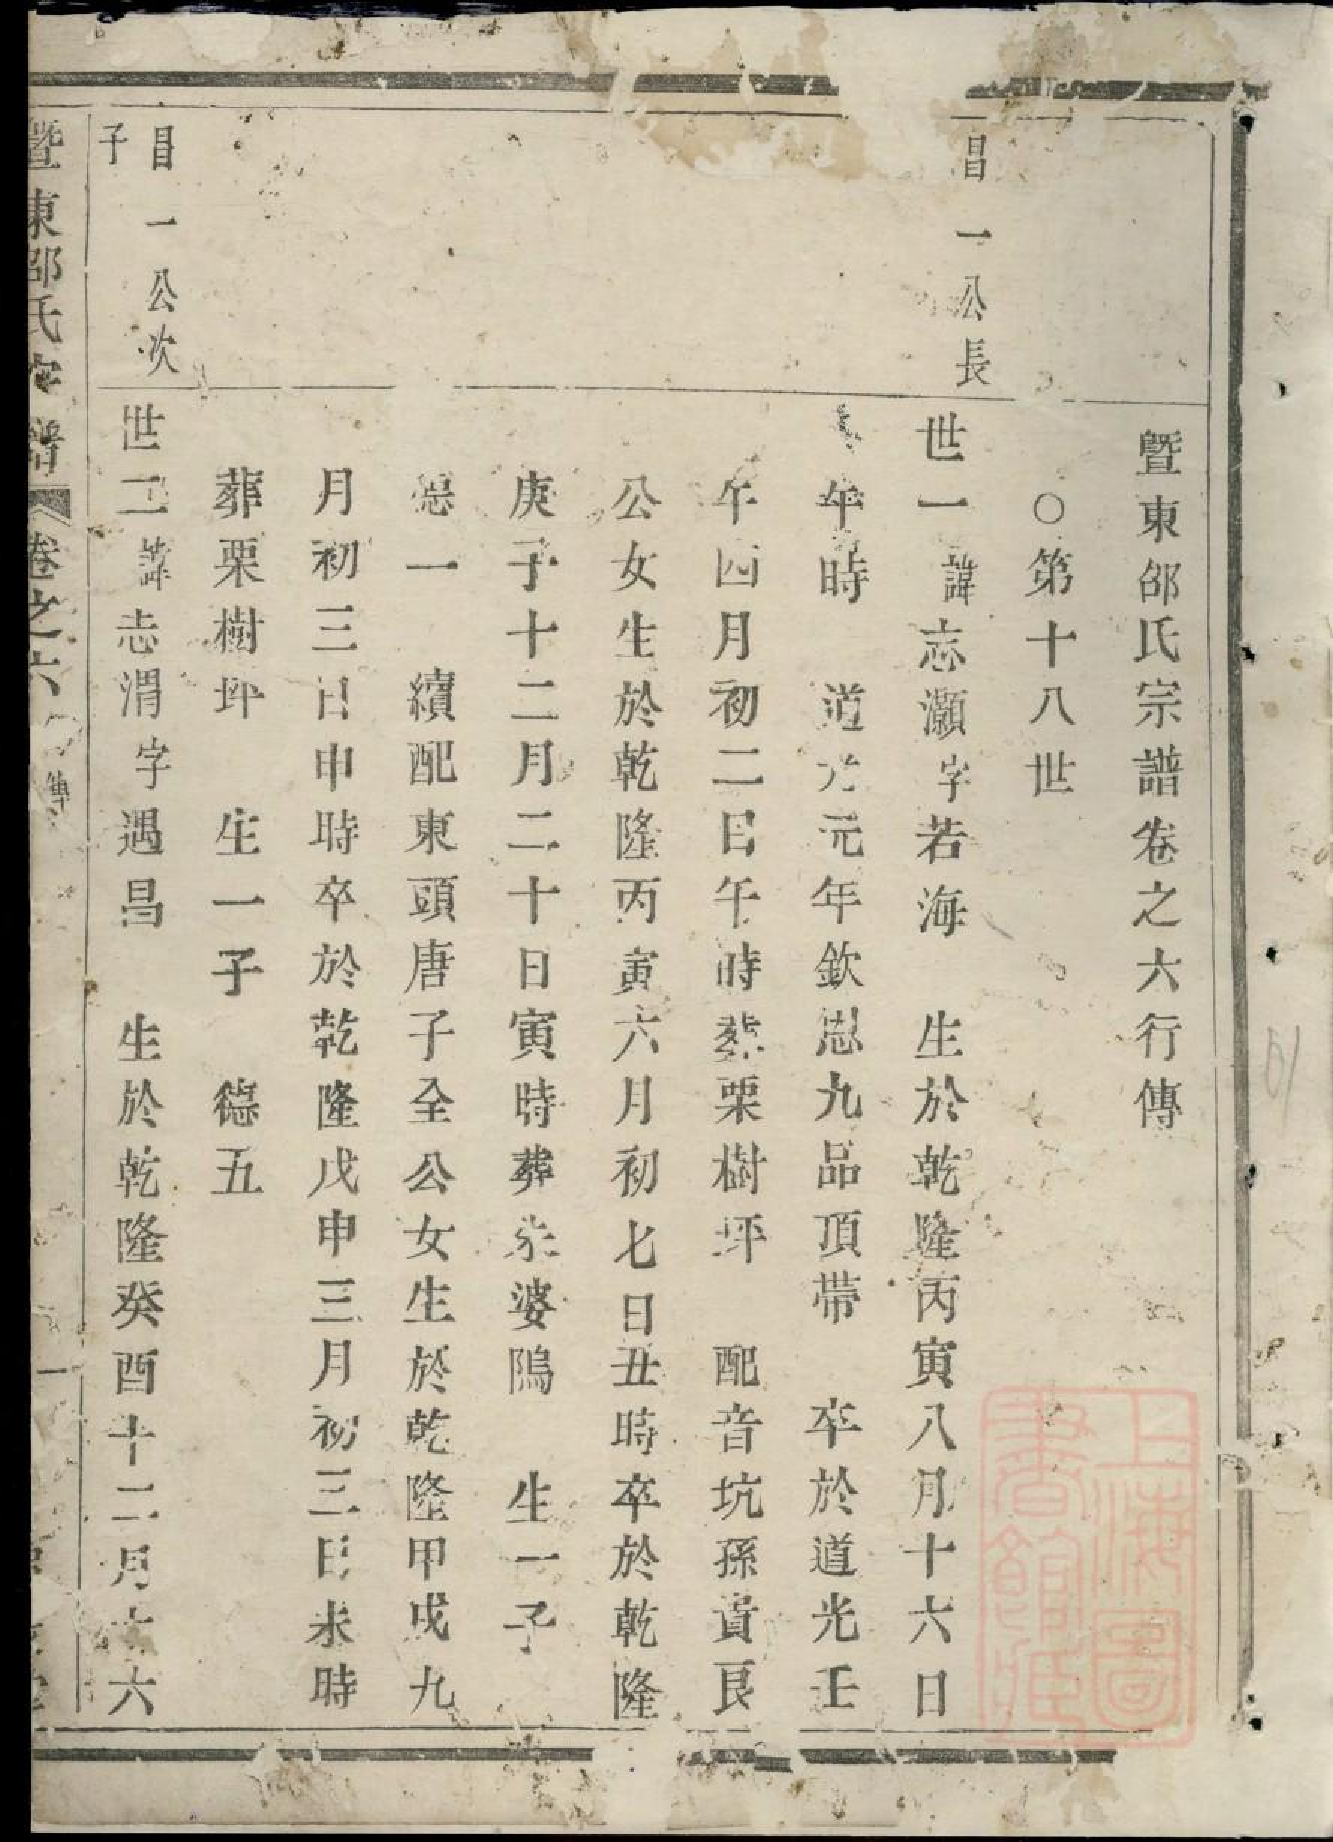 暨東邵氏宗譜卷之六行傳
○第十八世
昌一公長
世一諱志灝字若海　生於乾隆丙寅八月十六日
午時　道光元年欽恩九品頂帶　卒於道光壬
午四月初二日午時葬栗樹坪　配音坑孫資良
公女生於乾隆丙寅六月初七日丑時卒於乾隆
庚子十二月二十日寅時葬朱婆隖　生一子
德一　續配東頭唐子全公女生於乾隆甲戌九
月初三日申時卒於乾隆戊申三月初三日未時
葬栗樹坪　生一子　德五
昌一公次
子
世二諱志渭字遇昌　生於乾隆癸酉十二月十六
暨東邵氏宗譜　卷之六　傳　一
上海圖
書館藏